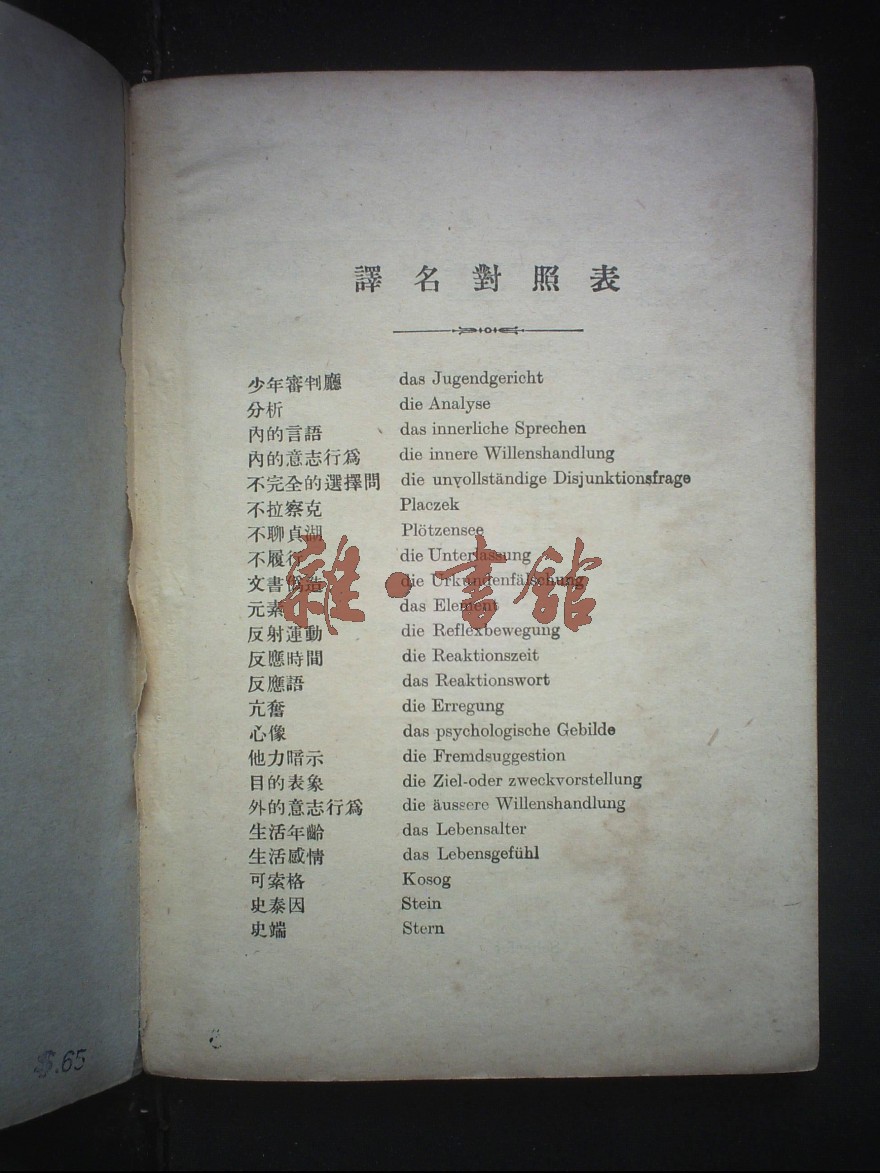 譯名對照表
少年審判廳 das Jugendgericht
分析 die Analyse
內的言語 das innerliche Sprechen
內的意志行爲 die innere Willenshandlung
不完全的選擇問 die unvollständige Disjunktionsfrage
不拉察克 Placzek
不聊貞湖 Plötzensee
不履行 die Unterlassung
文書僞造 die Urkundenfälschung
元素 das Element
反射運動 die Reflexbewegung
反應時間 die Reaktionszeit
反應語 das Reaktionswort
亢奮 die Erregung
心像 das psychologische Gebilde
他力暗示 die Fremdsuggestion
目的表象 die Ziel-oder zweckvorstellung
外的意志行爲 die äussere Willenshandlung
生活年齡 das Lebensalter
生活感情 das Lebensgefühl
可索格 Kosog
史泰因 Stein
史端 Stern
雜·書館
.65